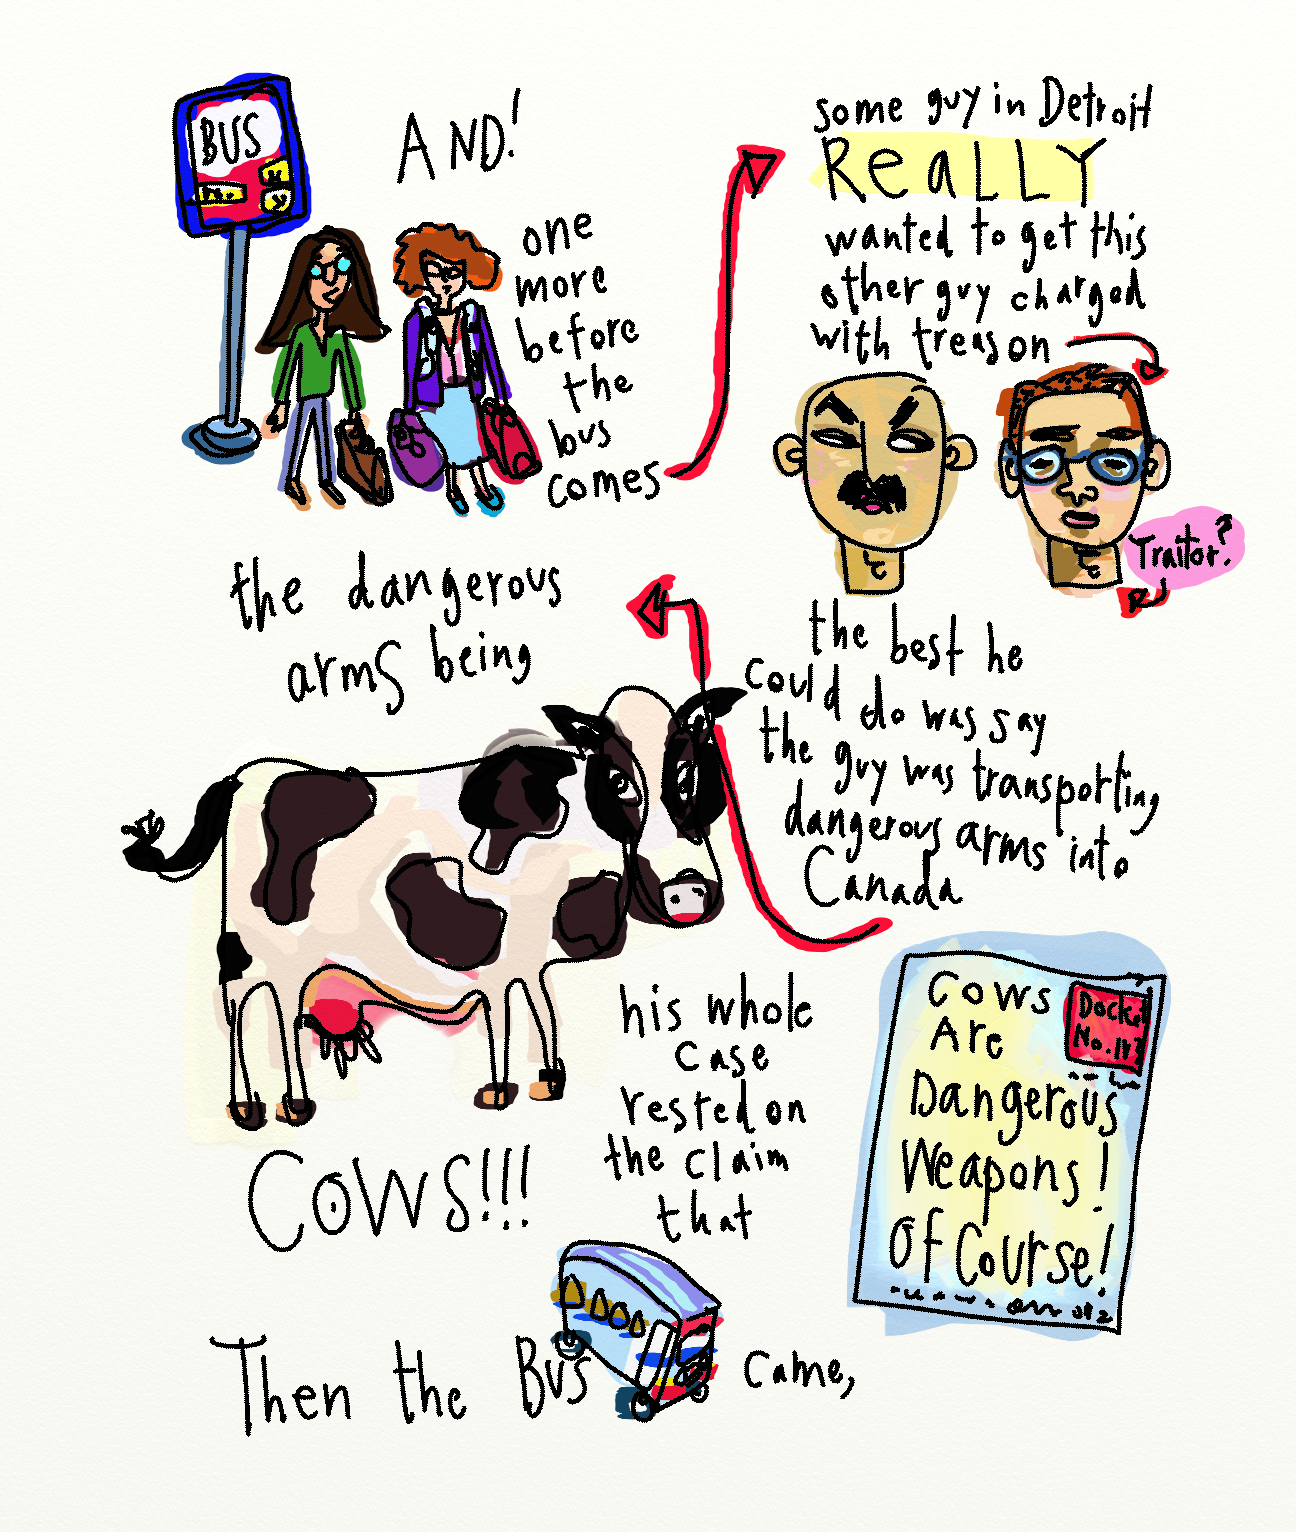 BUS
AND!
one
more
before
the
bus
comes
some guy in Detroit
REALLY
wanted to get this
other guy charged
with treason
Traitor?
the best he
could do was say
the guy was transporting
dangerous arms into
Canada
the dangerous
arms being
COWS!!!
his whole
case
rested on
the claim
that
Cows
Are
Dangerous
Weapons!
Of Course!
Docket
No.
Then the Bus came,